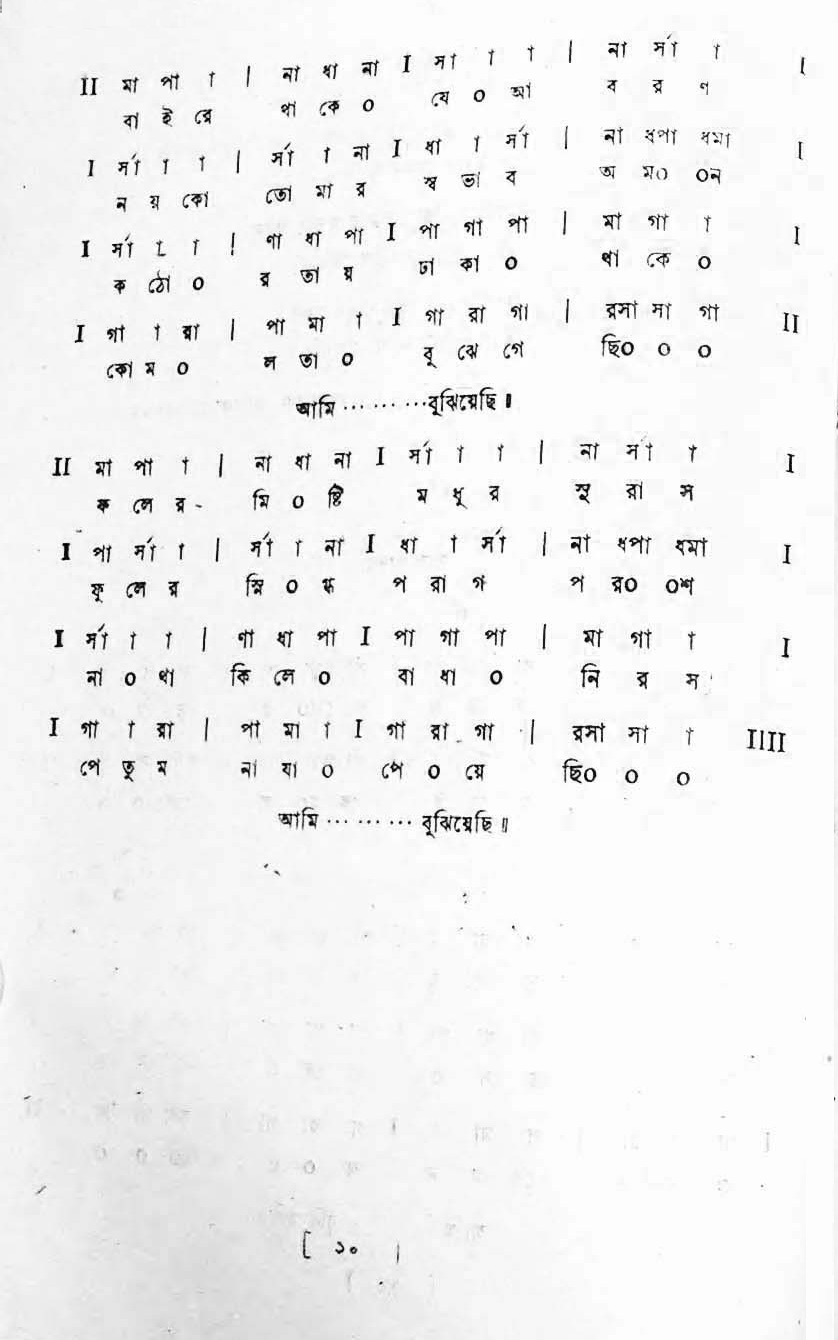 II মা পা া | না ধা না I র্সা া া | না র্সা া I
বা ই রে থা কে ০ যে ০ আ ব র ণ
I র্সা া া | র্সা া না I ধা া র্সা | না ধপা ধমা I
ন য় কো তো মা র স্ব ভা ব অ ম০ ০ন
I র্সা া া | ণা ধা পা I পা গা পা | মা গা া I
ক ঠো ০ র তা য় ঢা কা ০ থা কে ০
I গা া রা | পা মা া I গা রা গা | রসা সা গা II
কো ম ০ ল তা ০ বু ঝে গে ছি০ ০ ০
আমি ··· ··· ···বুঝিয়েছি॥
II মা পা া | না ধা না I র্সা া া | না র্সা া I
ফ লে র- মি ০ ষ্টি ম ধু র সু রা স
I পা র্সা া | র্সা া না I ধা া র্সা | না ধপা ধমা I
ফু লে র স্নি ০ গ্ধ প রা গ প র০ ০শ
I র্সা া া | ণা ধা পা I পা গা পা | মা গা া I
না ০ থা কি লে ০ বা ধা ০ নি র স
I গা া রা | পা মা া I গা রা গা | রসা সা া IIII
পে তু ম না যা ০ পে ০ য়ে ছি০ ০ ০
আমি ··· ··· ··· বুঝিয়েছি॥
[ ১০ ]